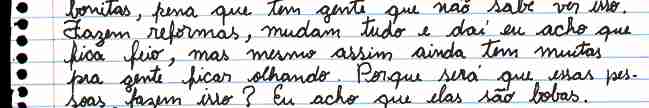 bonitas, pena que tem gente que não sabe ver isso.
Fazem reformas, mudam tudo e daí eu acho que
fica feio, mas mesmo assim ainda tem muitas
pra gente ficar olhando. Porque será que essas pes-
soas fazem isso? Eu acho que elas são bobas.